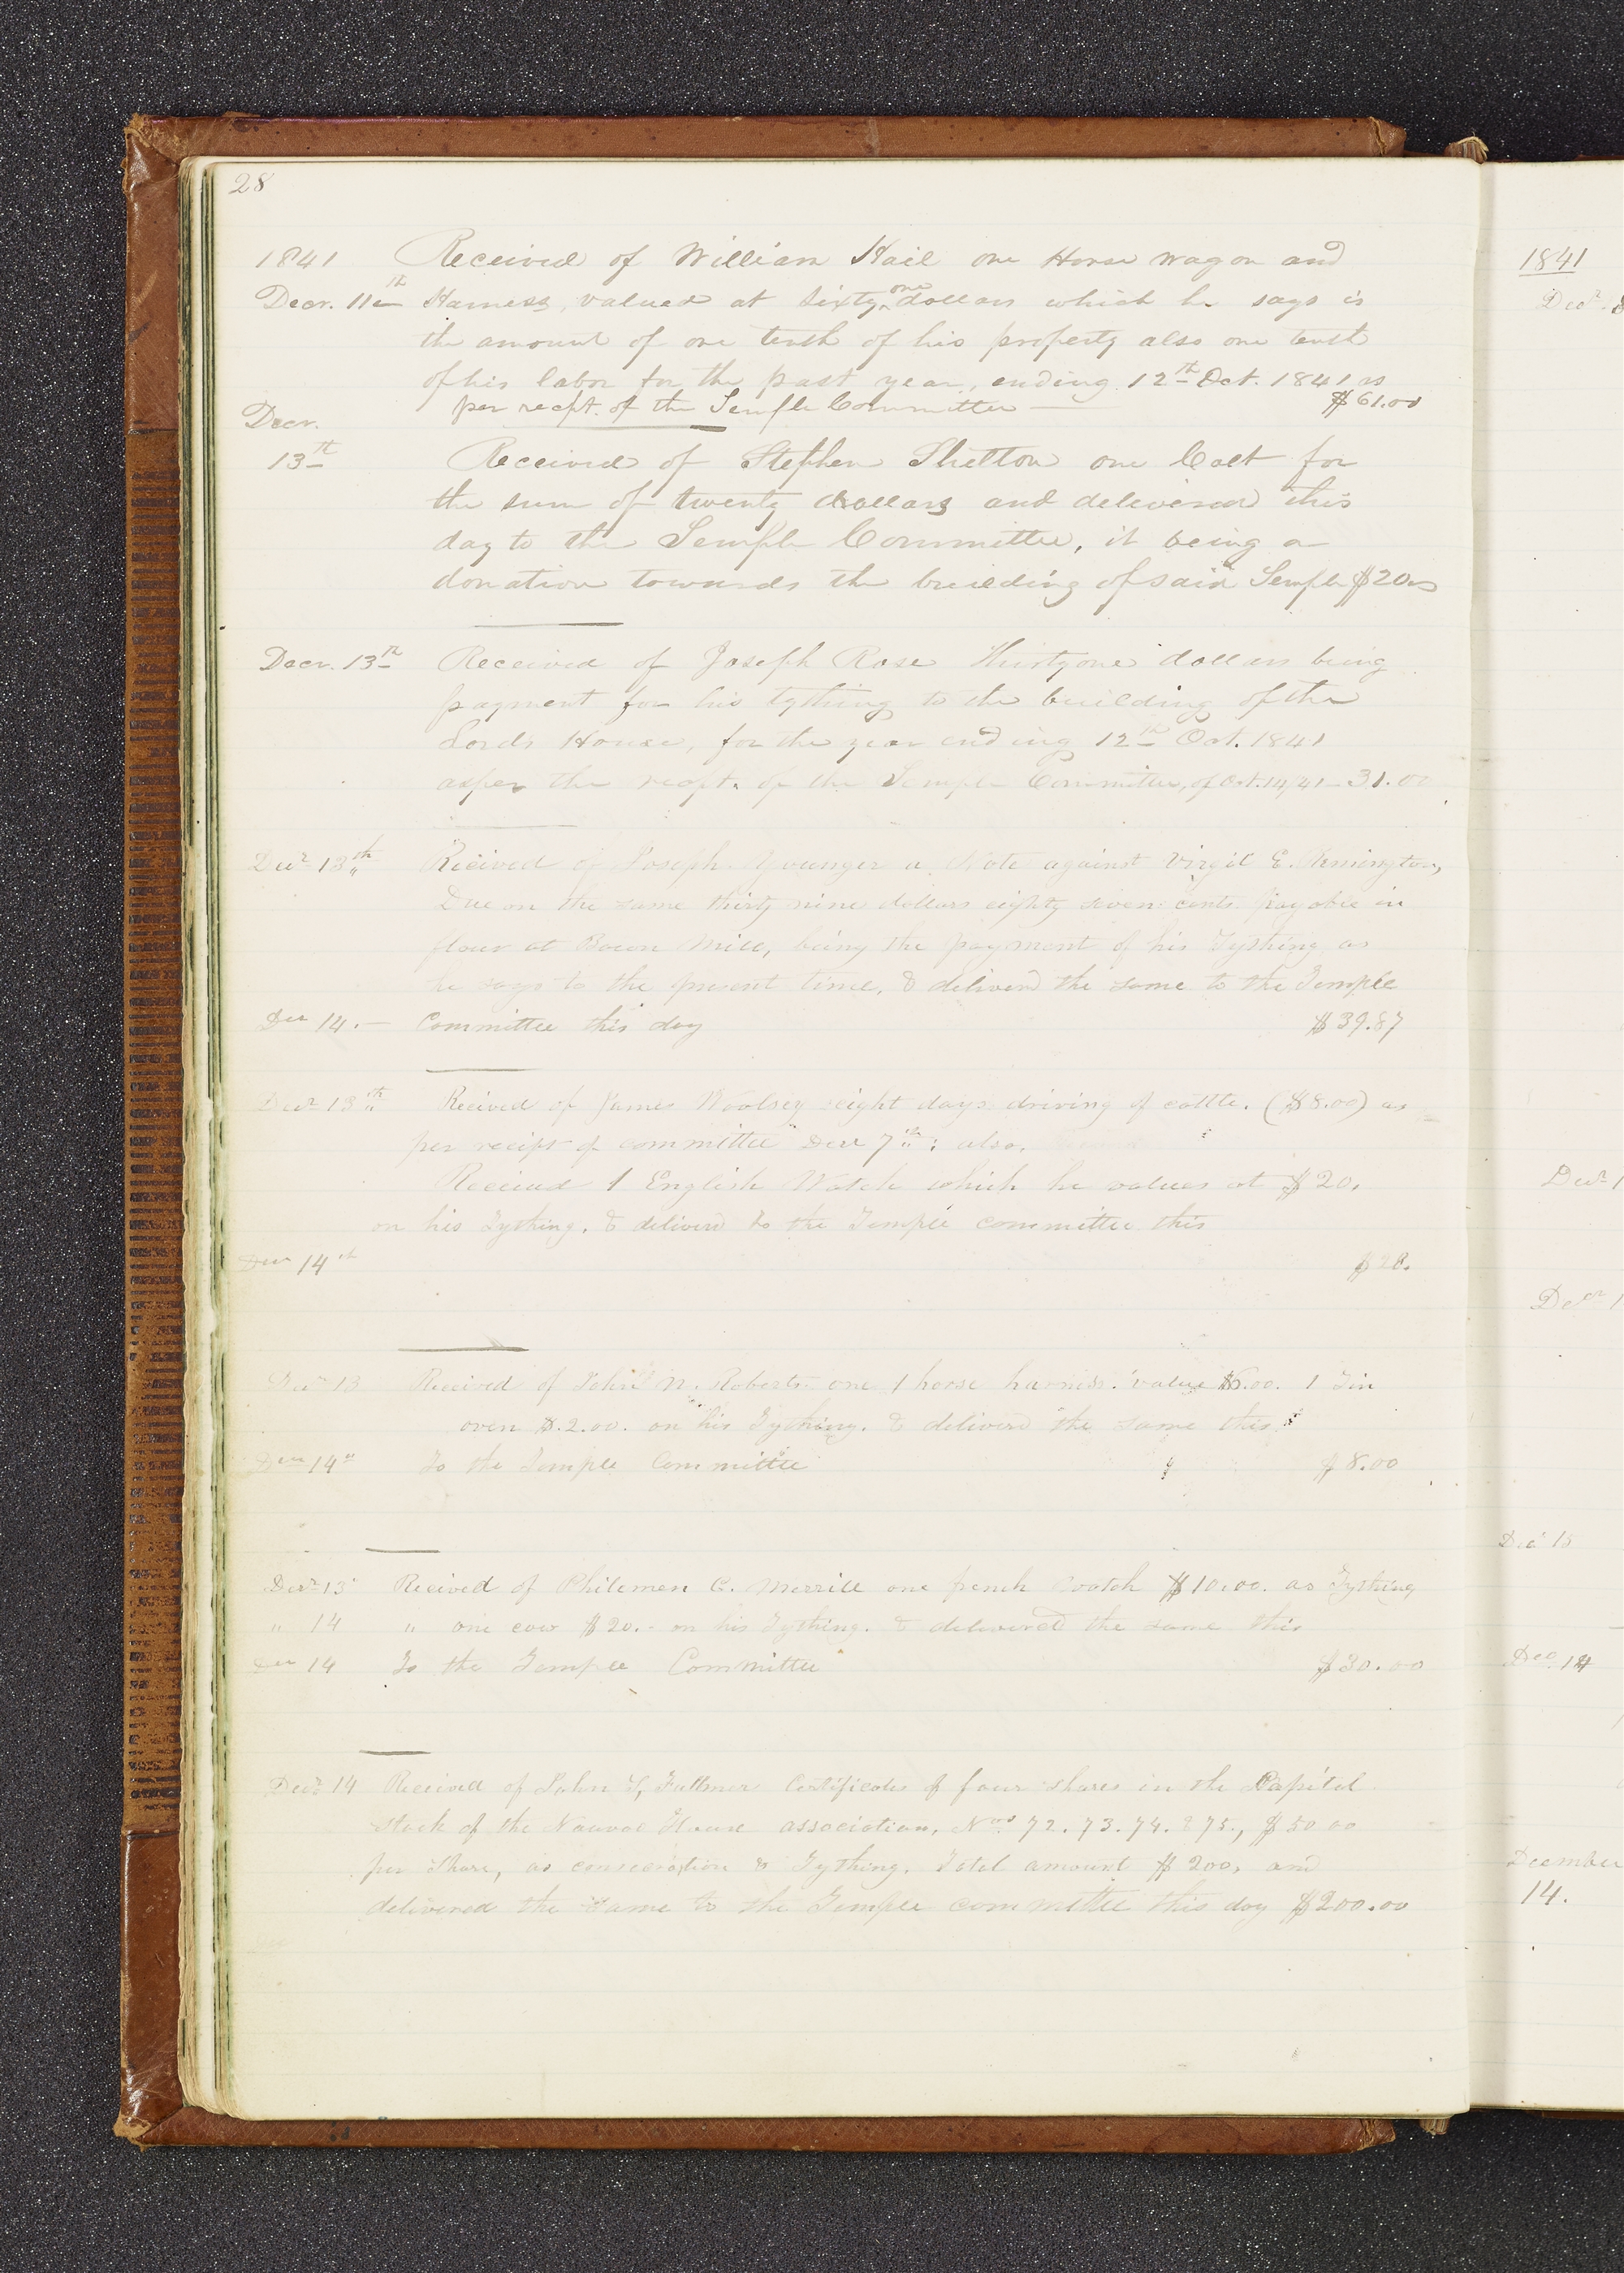 28
1841 Received of William Hail one Horse wagon and
Decr. 11th Harness, valued at sixty one dollars which he says is
the amount of one tenth of his property also one tenth
of his labor for the past year, ending 12th Oct. 1841 as
per recpt. of the Temple Committee — $61.00
Decr.
13th Received of Stephen Shelton one Colt for
the sum of twenty dollars and delivered this
day to the Temple Committee, it being a
donation towards the building of said Temple $20.00
Decr. 13th Received of Joseph Rose Thirtyone dollars being
payment for his tything to the building of the
Lord's House, for the year ending 12th Oct. 1841
asper the recpt. of the Temple Committee, of Oct. 14/41 – 31.00
Decr 13th Recived of Joseph Younger a Note against Virgil E. Remington,
Due on the same thirty nine dollars eighty seven cents payable in
flour at Mill, being the payment of his Tything as
he says to the present time, & deliverd the same to the Temple
Dec 14. — Committee this day $39.87
Decr 13th Recived of James Woolsey eight days driving of cattle. ($8.00) as
per recipt of committee Decr 7th; also,
Recived 1 English Watch which he values at $20.
on his Tything. & deliverd to the Temple committee this
Decr 14th $28.
Decr 13 Received of John W. Roberts one 1 horse harniss. value $6.00. 1 Tin
oven $.2.00. on his Tything. & deliverd the same this
Decr 14" To the Temple Committee $8.00
Decr 13 Recived of Philemon C. Merrill one french Watch $10.00. as Tything
" 14 " one cow $20.- on his Tything. & delivered the same this
Dec 14 To the Temple Committee $30.00
Decr 14 Received of John S, Fullmer Certificates of four shares in the Capitol
stock of the Nauvoo House association, Nos 72. 73. 74. & 75., $50 00
per share, as conseceration & Tything. Total amount $200, and
delivered the same to the Temple committee this day $200.00
1841
Decr
Decr 1
Decr 1
Dec 15
Dec 14
December
14.